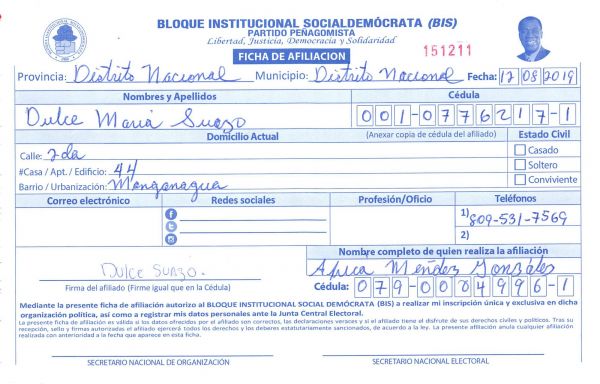 BLOQUE INSTITUCIONAL SOCIALDEMÓCRATA (BIS)
PARTIDO PEÑAGOMISTA
Libertad, Justicia, Democracia y Solidaridad
FICHA DE AFILIACION
151211
Provincia: Distrito Nacional Municipio: Distrito Nacional Fecha: 12 08 2019
Nombres y Apellidos Cédula
Dulce María Suazo 001-0776217-1
Domicilio Actual (Anexar copia de cédula del afiliado) Estado Civil
Calle: 2da Casado
#Casa / Apt. / Edificio: 44 Soltero
Barrio / Urbanización: Manganagua Conviviente
Correo electrónico Redes sociales Profesión/Oficio Teléfonos
1) 809-531-7569
2)
Nombre completo de quien realiza la afiliación
DULCE SUAZO. Méndez González
Firma del afiliado (Firme igual que en la Cédula) Cédula: 079-0004996-1
Mediante la presente ficha de afiliación autorizo al BLOQUE INSTITUCIONAL SOCIAL DEMÓCRATA (BIS) a realizar mi inscripción única y exclusiva en dicha
organización política, así como a registrar mis datos personales ante la Junta Central Electoral.
La presente ficha de afiliación es válida si los datos ofrecidos por el afiliado son correctos, las declaraciones veraces y si el afiliado tiene el disfrute de sus derechos civiles y políticos. Tras su
recepción, sello y firmas autorizadas el afiliado ejercerá todos los derechos y los deberes estatutariamente sancionados, de acuerdo a la ley. La presente afiliación anula cualquier afiliación
realizada con anterioridad a la fecha que aparece en esta ficha.
SECRETARIO NACIONAL DE ORGANIZACIÓN SECRETARIO NACIONAL ELECTORAL